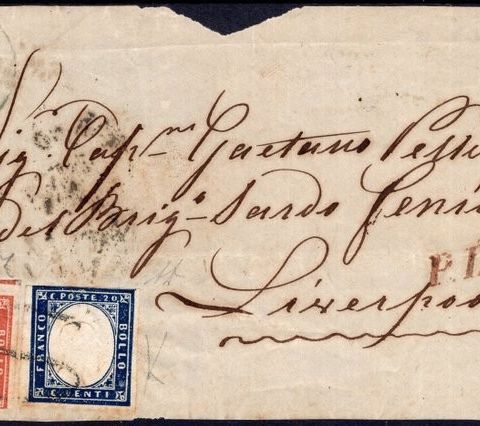 Sig. Cap.no Gaetano
del Brig.o Sardo
P.
Liverpo
C. POSTE. 20
FRANCO
BOLLO
C. VENTI
BOLLO